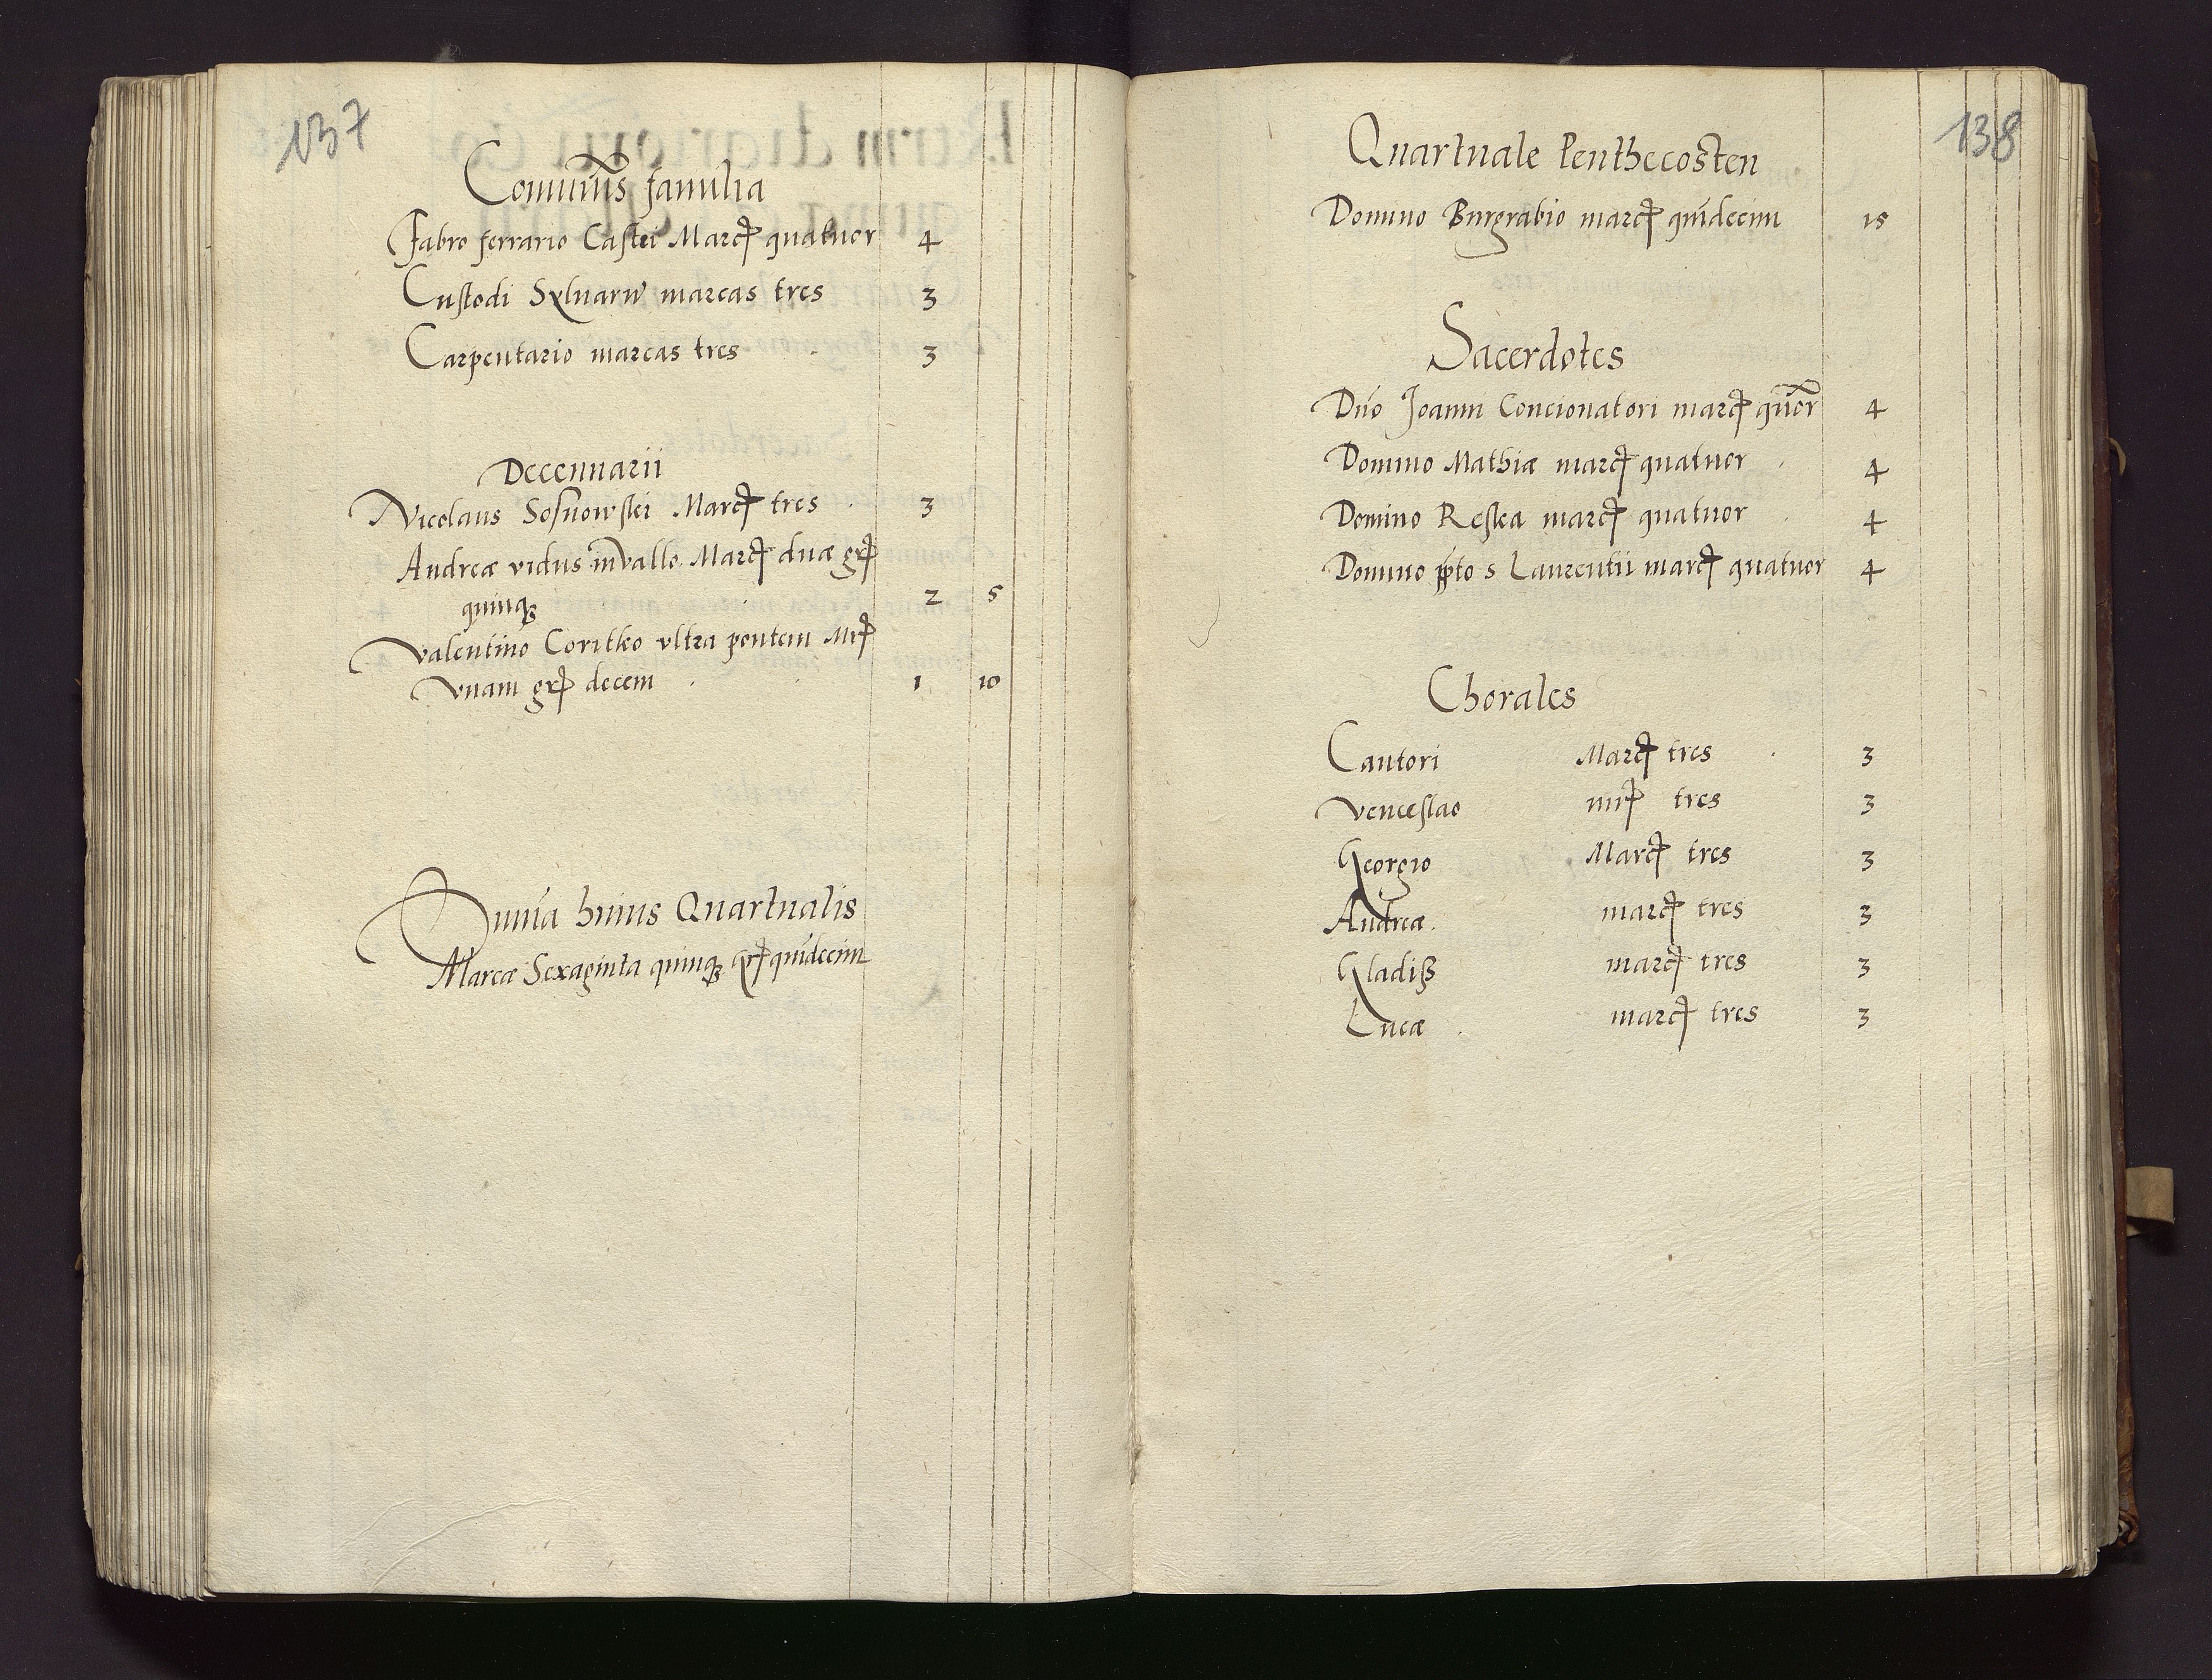 137
Comunis familia
Fabro ferrario Castri Marcas quatuor 4
Custodi Sylvaru marcas tres 3
Carpentario marcas tres 3
Decennarii
Nicolaus Sosnowski Marcas tres 3
Andreæ vidus in vallo Marcas duæ gr
quinq 2 5
Valentino Coritko vltra pontem Mr
vnam gr decem 1 10
Suma huius Quartualis
Marcæ Sexaginta quinq gr quidecim
138
Quartuale Penthecosten
Domino Burgrabio marcas quidecim 15
Sacerdotes
Dno Joanni Concionatori marcas quor 4
Domino Mathiæ marcas quatuor 4
Domino Reska marcas quatuor 4
Domino ppto s Laurentii marcas quatuor 4
Chorales
Cantori Marcas tres 3
Venceslao mr tres 3
Georgio Marcas tres 3
Andreæ marcas tres 3
Gladiß marcas tres 3
Lucæ marcas tres 3